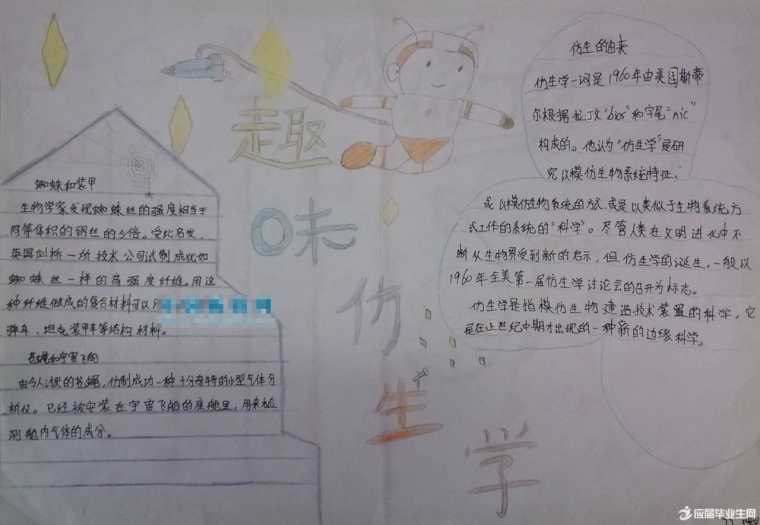 趣
味
仿
生
学
蜘蛛和装甲
生物学家发现蜘蛛丝的强度相当于
同等体积的钢丝的5倍。受此启发,
英国剑桥一所技术公司试制成犹如
蜘蛛丝一样的高强度纤维。用这
种纤维做成的复合材料可以
弹车、坦克装甲车等结构材料。
苍蝇和宇宙飞船
由令人讨厌的苍蝇,仿制成功一种十分奇特的小型气体分
析仪。已经被安装在宇宙飞船的座舱里,用来检
测舱内气体的成分。
仿生的由来
仿生学一词是1960年由美国斯蒂
尔根据拉丁文"bios"和字尾"nic"
构成的。他认为"仿生学"是研
究以模仿生物系统特征、
或以模仿生物系统的方式,或是以类似于生物系统方
式工作的系统的"科学"。尽管人类在文明进化中不
断从生物界受到新的启示,但仿生学的诞生,一般以
1960年全美第一届仿生学讨论会的召开为标志。
仿生学是指模仿生物建造技术装置的科学,它
是在上世纪中期才出现的一种新的边缘科学。
应届毕业生网